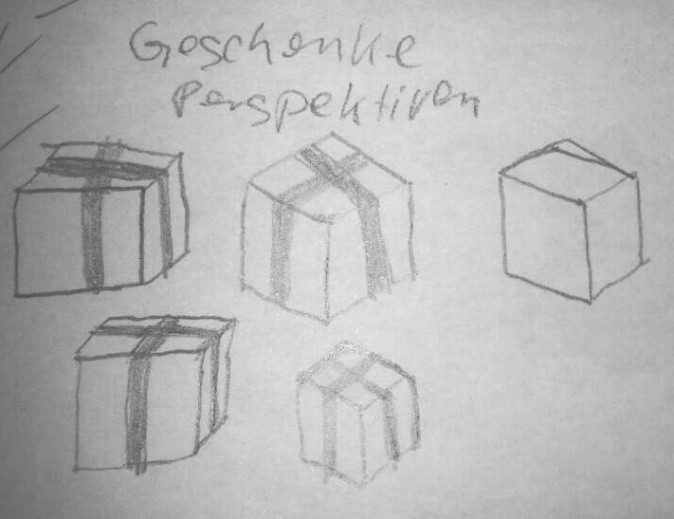 Geschenke
Perspektiven